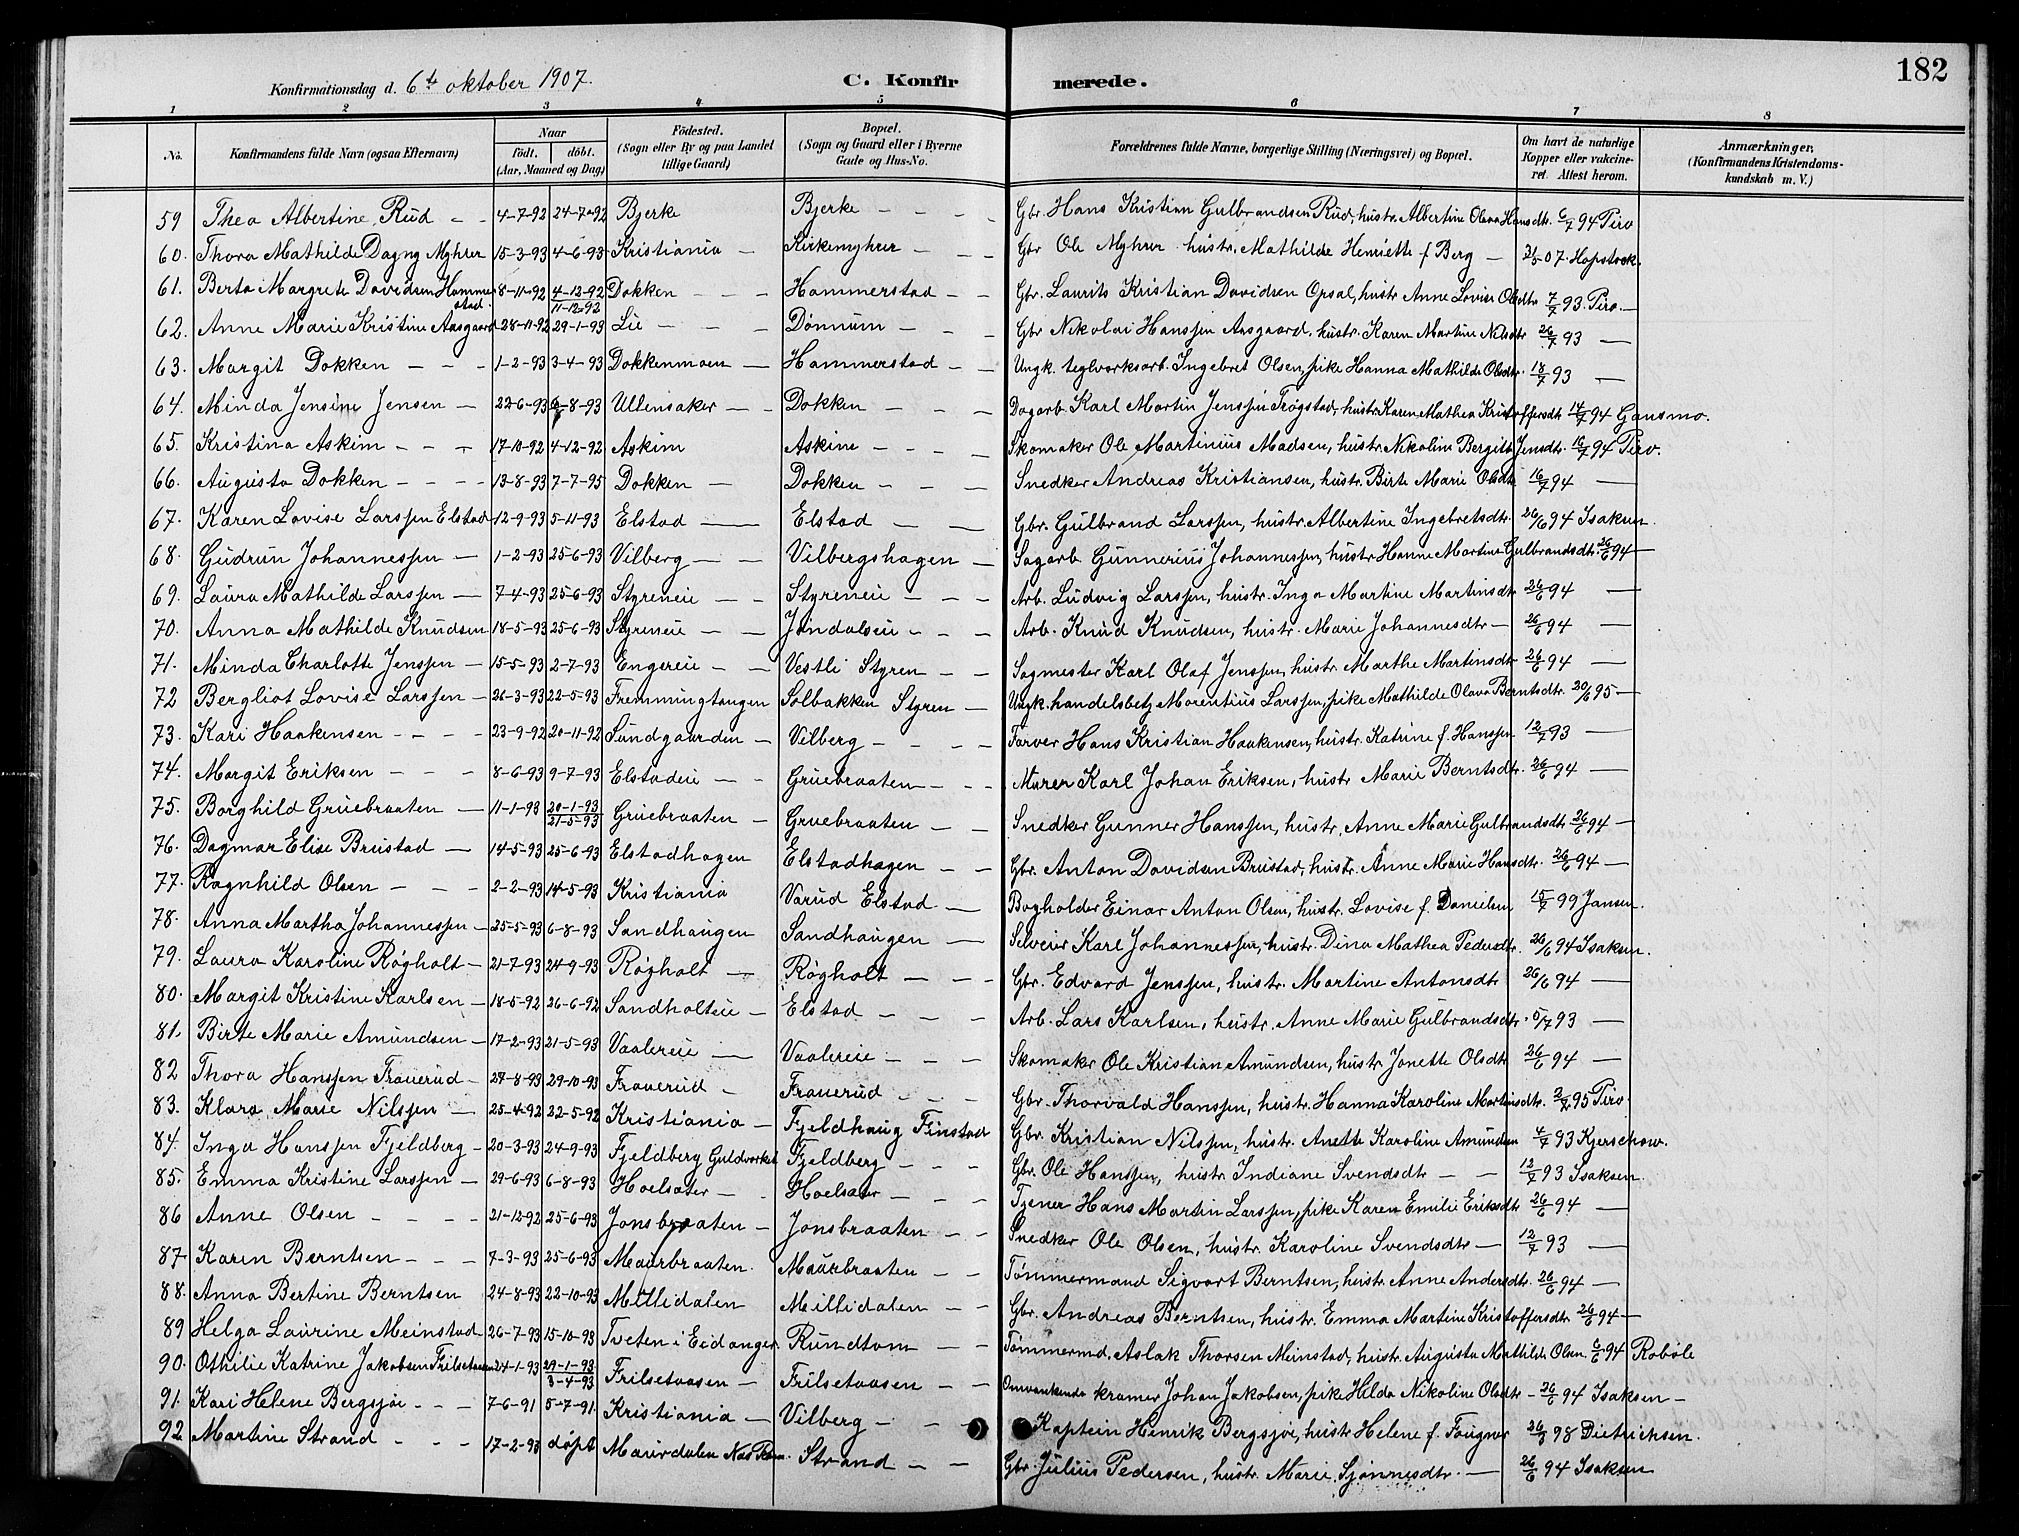 182
Konfirmationsdag d. 6te oktober 1907. C. Konfirmerede.
1 2 3 4 5 6 7 8
No. Konfirmandens fulde Navn (ogsaa Efternavn) Naar født. døbt. (Aar, Maaned og Dag) Fødested. (Sogn eller By og paa Landet tillige Gaard) Bopæl. (Sogn og Gaard eller i Byerne Gade og Hus-No. Forældrenes fulde Navne, borgerlige Stilling (Næringsvei) og Bopæl. Om havt de naturlige Kopper eller vakcineret. Attest herom. Anmærkninger. (Konfirmandens Kristendomskundskab m. V.)
59 Thea Albertine Rud - - 4-7-92 24-7-92 Bjerke Bjerke - - - - Gbr. Hans Kristian Gulbrandsen Rud, hustr. Albertine Olava Hansdt. 6/7 94 Tiro
60. Thora Mathilde Dagny Myhrer 15-3-93 4-6-93 Kristiania - Kirkemyhrer - - - Gbr Ole Myhrer hustr. Mathilde Henriette f Berg - 3/5 07. Hopstock.
61. Berta Margrete Davidsen Hammerstad. 8-11-92 4-12-92 11-12-92 Dokken - - - Hammerstad - - Gbr. Laurits Kristian Davidsen Opsal, hustr Anne Lovise Olsdtr 7/7 93. Tiro. -
62. Anne Marie Kristine Aasgaard 28-11-92 29-1-93 Lie - - - Dønnum - - - Gbr Nikolai Hanssen Aasgaard. hustr. Karen Martine Nilsdtr 26/7 93 -
63. Margit Dokken - - - 1-2-93 3-4-93 Dokkenmoen - Hammerstad - - Ungk. teglverksarb. Ingebret Olsen, pike Hanna Mathilde Olsdtr. 18/7 93 -
64. Minda Jensine Jensen - 22-6-93 6-8-93 Ullensaker - - Dokken - - - Dagarb. Karl Martin Jenssen Trøgstad, hustr. Karen Mathea Kristoffersdt 14/7 94 Gansmo.
65. Kristina Askim - - - 17-10-92 4-12-92 Askim Askim - - - - Skomaker Ole Martinius Madsen, hustr. Nikoline Bergitte Jensdt. 16/7 94 Tiro.
66. Augusta Dokken - - - - 13-8-93 7-7-95 Dokken - Dokken - - - Snedker Andreas Kristiansen, hustr. Birte Marie Olsdt 16/7 94 -
67. Karen Lovise Larssen Elstad 12-9-93 5-11-93 Elstad - Elstad - - Gbr. Gulbrand Larssen, hustr. Albertine Ingebretsdtr. 26/6 94 Isaksen.
68. Gudrun Johannessen - 1-2-93 25-6-93 Vilberg - - Vilbergshagen - Sagarb Gunnerius Johannessen, hustr Hanne Martine Gulbrandsdtr. 26/6 94 -
69. Laura Mathilde Larssen - 7-4-93 25-6-93 Styreneie - - Styreneie - - - Arb. Ludvig Larssen, hustr. Inga Martine Martinsdtr 26/6 94 -
70. Anna Mathilde Knudsen 18-5-93 25-6-93 Styreneie - - Jøndalseie - - - Arb. Knud Knudsen, hustr. Marie Johannesdtr - 26/6 94 -
71. Minda Charlotte Jenssen - 15-5-93 2-7-93 Engereie - - Vestli Styren - - Sagmester Karl Olaf Jenssen, hustr. Marthe Martinsdtr 26/6 94 -
72 Bergliot Lovise Larssen - 26-3-93 22-5-93 Fremmingtangen Solbakken Styren - Ungk. handelsbetj Morentius Larssen, pike Mathilde Olava Berntsdtr. 20/6 95 -
73. Kari Haakensen - - - - 23-9-92 20-11-92 Sundgaarden - Vilberg - - - - Farver Hans Kristian Haakensen, hustr. Katrine f. Hanssen 12/7 93 -
74. Margit Eriksen - - - 8-6-93 9-7-93 Elstadeie - - Gruebraaten - - - Murer Karl Johan Eriksen, hustr Marie Berntsdtr. 26/6 94 -
75. Borghild Gruebraaten - 11-1-93 20-1-93 21-5-93 Gruebraaten - Gruebraaten - - Snedker Gunner Hanssen, hustr. Anne Marie Gulbrandsdtr 26/6 94 -
76. Dagmar Elise Brustad - 14-5-93 25-6-93 Elstadhagen Elstadhagen - - Gbr. Anton Davidsen Brustad, hustr. Anne Marie Hansdtr. 26/6 94 -
77. Ragnhild Olsen - - - 2-2-93 14-5-93 Kristiania Varud Elstad - Bogholder Einar Anton Olsen, hustr. Lovise f. Danielsen 15/7 99 Jansen.
78. Anna Martha Johannessen - 25-5-93 6-8-93 Sandhaugen Sandhaugen - Selveier Karl Johannessen, hustr. Dina Mathea Pedersdtr. 26/6 94 Isaksen.
79. Laura Karoline Røgholt - 21-7-93 24-9-93 Røgholt - Røgholt - - - Gbr. Edvard Jenssen, hustr. Martine Antonsdtr 26/6 94 -
80. Margit Kristine Karlsen - 18-5-92 26-6-92 Sandholteie - Elstad - - - Arb. Lars Karlsen, hustr. Anne Marie Gulbrandsdtr. 5/7 93 -
81. Birte Marie Amundsen - 17-2-93 21-5-93 Vaalereie - Vaalereie - - - Skomaker Ole Kristian Amundsen, hustr. Jonette Olsdtr 26/6 94 -
82 Thora Hanssen Frauerud - 27-8-93 29-10-93 Frauerud - Frauerud - - - Gbr. Thorvald Hanssen, hustr. Hanna Karoline Martinsdtr. 2/7 95 Tiro.
83. Klara Marie Nilssen - 25-4-92 22-5-92 Kristiania - Fjeldhaug Finstad Gbr. Kristian Nilssen, hustr. Anette Karoline Amundsen 4/7 93 Kjerschow.
84. Inga Hanssen Fjeldberg - 20-3-93 24-9-93 Fjeldberg Guldverket Fjeldberg - - - Gbr. Ole Hanssen, hustr. Indiane Svendsdtr - - 12/7 93 Isaksen.
85. Emma Kristine Larssen - 29-6-93 6-8-93 Hoelsæter - - Hoelsæter - - - Tjener Hans Martin Larssen, pike Karen Emilie Eriksdt 26/6 94 -
86 Anne Olsen - - - - 21-12-92 25-6-93 Jonsbraaten - Jonsbraaten - - Snedker Ole Olsen, hustr. Karoline Svendsdtr - 12/7 93 -
87 Karen Berntsen - - - 7-3-93 25-6-93 Maurbraaten. Maurbraaten - - Tømmermand Sigvart Berntsen, hustr. Anne Andersdtr. 26/6 94 -
88. Anna Bertine Berntsen 24-8-93 22-10-93 Millidalen Millidalen - - Gbr. Andreas Berntsen, hustr. Emma Martine Kristoffersdtr 26/6 94 -
89 Helga Laurine Meinstad 26-7-93 15-10-93 Tveten i Eidanger Rundtom - - Tømmermd. Aslak Thorsen Meinstad, hustr. Augusta Mathilde Olsen. 6/6 94 Robøle
90. Othilie Katrine Jakobsen Frilsetaasen 24-1-93 29-1-93 3-4-93 Frilsetaasen - Frilsetaasen - - Omvankende kramer Johan Jakobsen, pike Hilda Nikoline Olsdtr - 26/6 94 Isaksen -
91. Kari Helene Bergsjøe - - - 7-6-91 5-7-91 Kristiania - Vilberg - - - Kaptein Henrik Bergsjøe, hustr Helene f. Fougner 26/8 98 Dietrichsen.
92 Martine Strand - - - 17-2-93 døpt Maurdalen Nas Rom. Strand - - Gbr. Julius Pedersen, hustr. Marie Sjønnesdtr. - 26/6 94 Isaksen